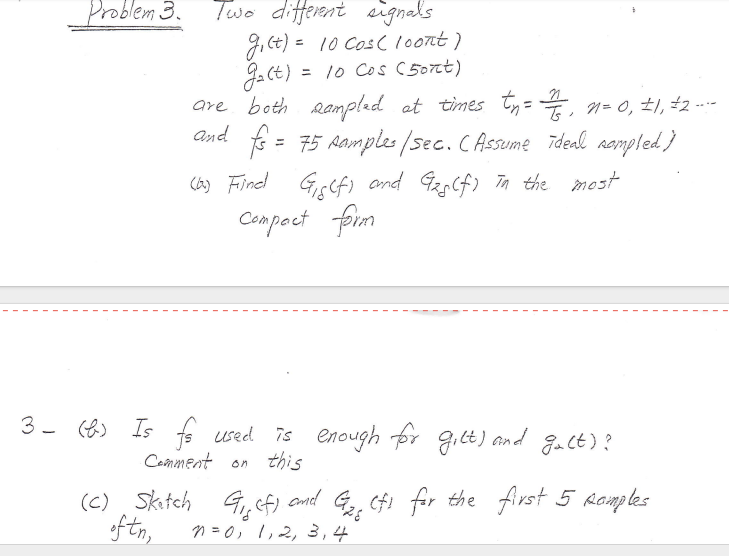 Problem 3. Two different signals
g₁(t) = 10 cos(100πt)
g₂(t) = 10 cos (50πt)
are both sampled at times tn = n/Ts, n = 0, ±1, ±2 ---
and fs = 75 samples/sec. (Assume ideal sampled)
(b) Find G₁s(f) and G₂s(f) in the most
compact form
3- (b) Is fs used is enough for g₁(t) and g₂(t)?
Comment on this
(c) Sketch G₁s(f) and G₂s(f) for the first 5 samples
of tn, n = 0, 1, 2, 3, 4